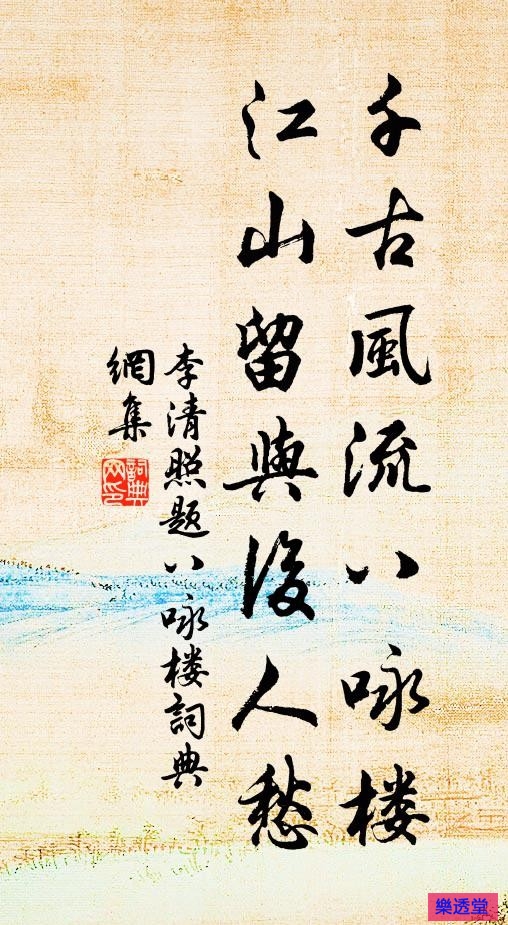 千古風流八咏楼
江山留與後人愁
李清照题八咏楼詞典
網集
詞典网印
樂透堂